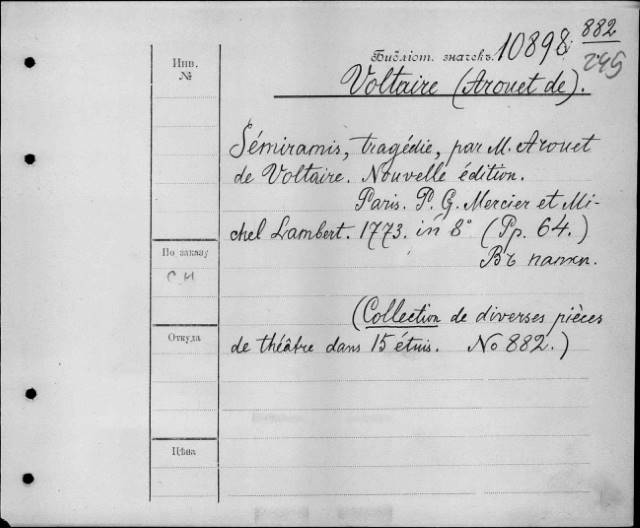 Инв.
№
Библіот. значекъ. 10898; 882
245
Voltaire (Arouet de).
Sémiramis, tragédie, par M. Arouet
de Voltaire. Nouvelle édition.
Paris. P. G. Mercier et Mi-
chel Lambert. 1773. in 8° (Pp. 64.)
Въ папки.
По заказу
С. Н
(Collection de diverses pièces
Откуда
de théâtre dans 15 étuis. No 882.)
Цѣна